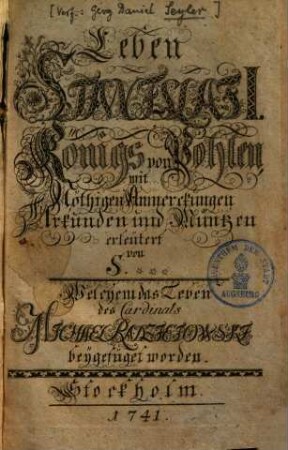 [Verf.: Georg Daniel Seyler]
Leben
STANISLAI I.
Königs von Pohlen,
mit
Nöthigen Anmerckungen
Urkunden und Müntzen
erleutert
von
S. * * *
Welchem das Leben
des Cardinals
MICHAEL RADZIEJOWSKI
beygefüget worden.
Stockholm.
1741.
BIBLIOTHEK DER STADT
AUGSBURG